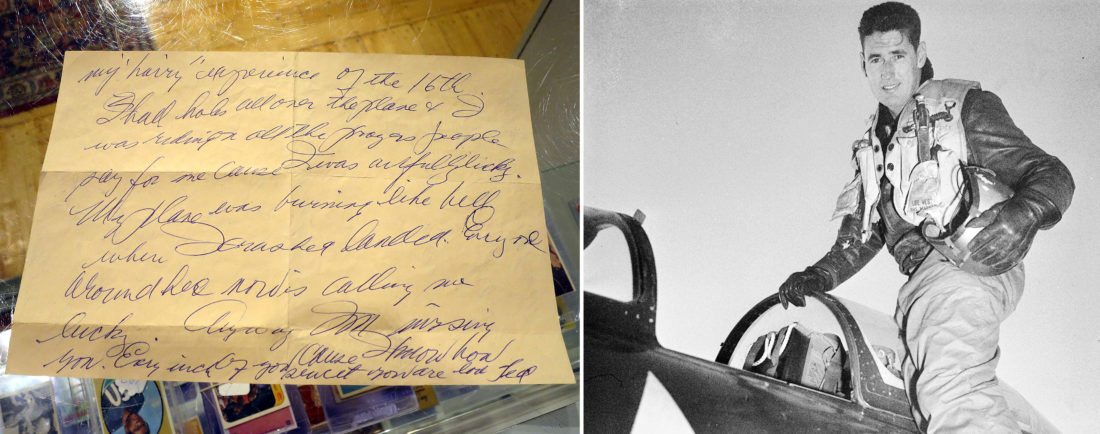 my "hairy" experience of the 16th
I had holes all over the plane & I
was riding on all the prayers people
say for me cause I was awful lucky.
My plane was burning like hell
when I crashed landed. Every one
around here now is calling me
lucky. Anyway I'm missing
you. Every inch of you cause I know how
sweet you are love Ted
LIFE VEST